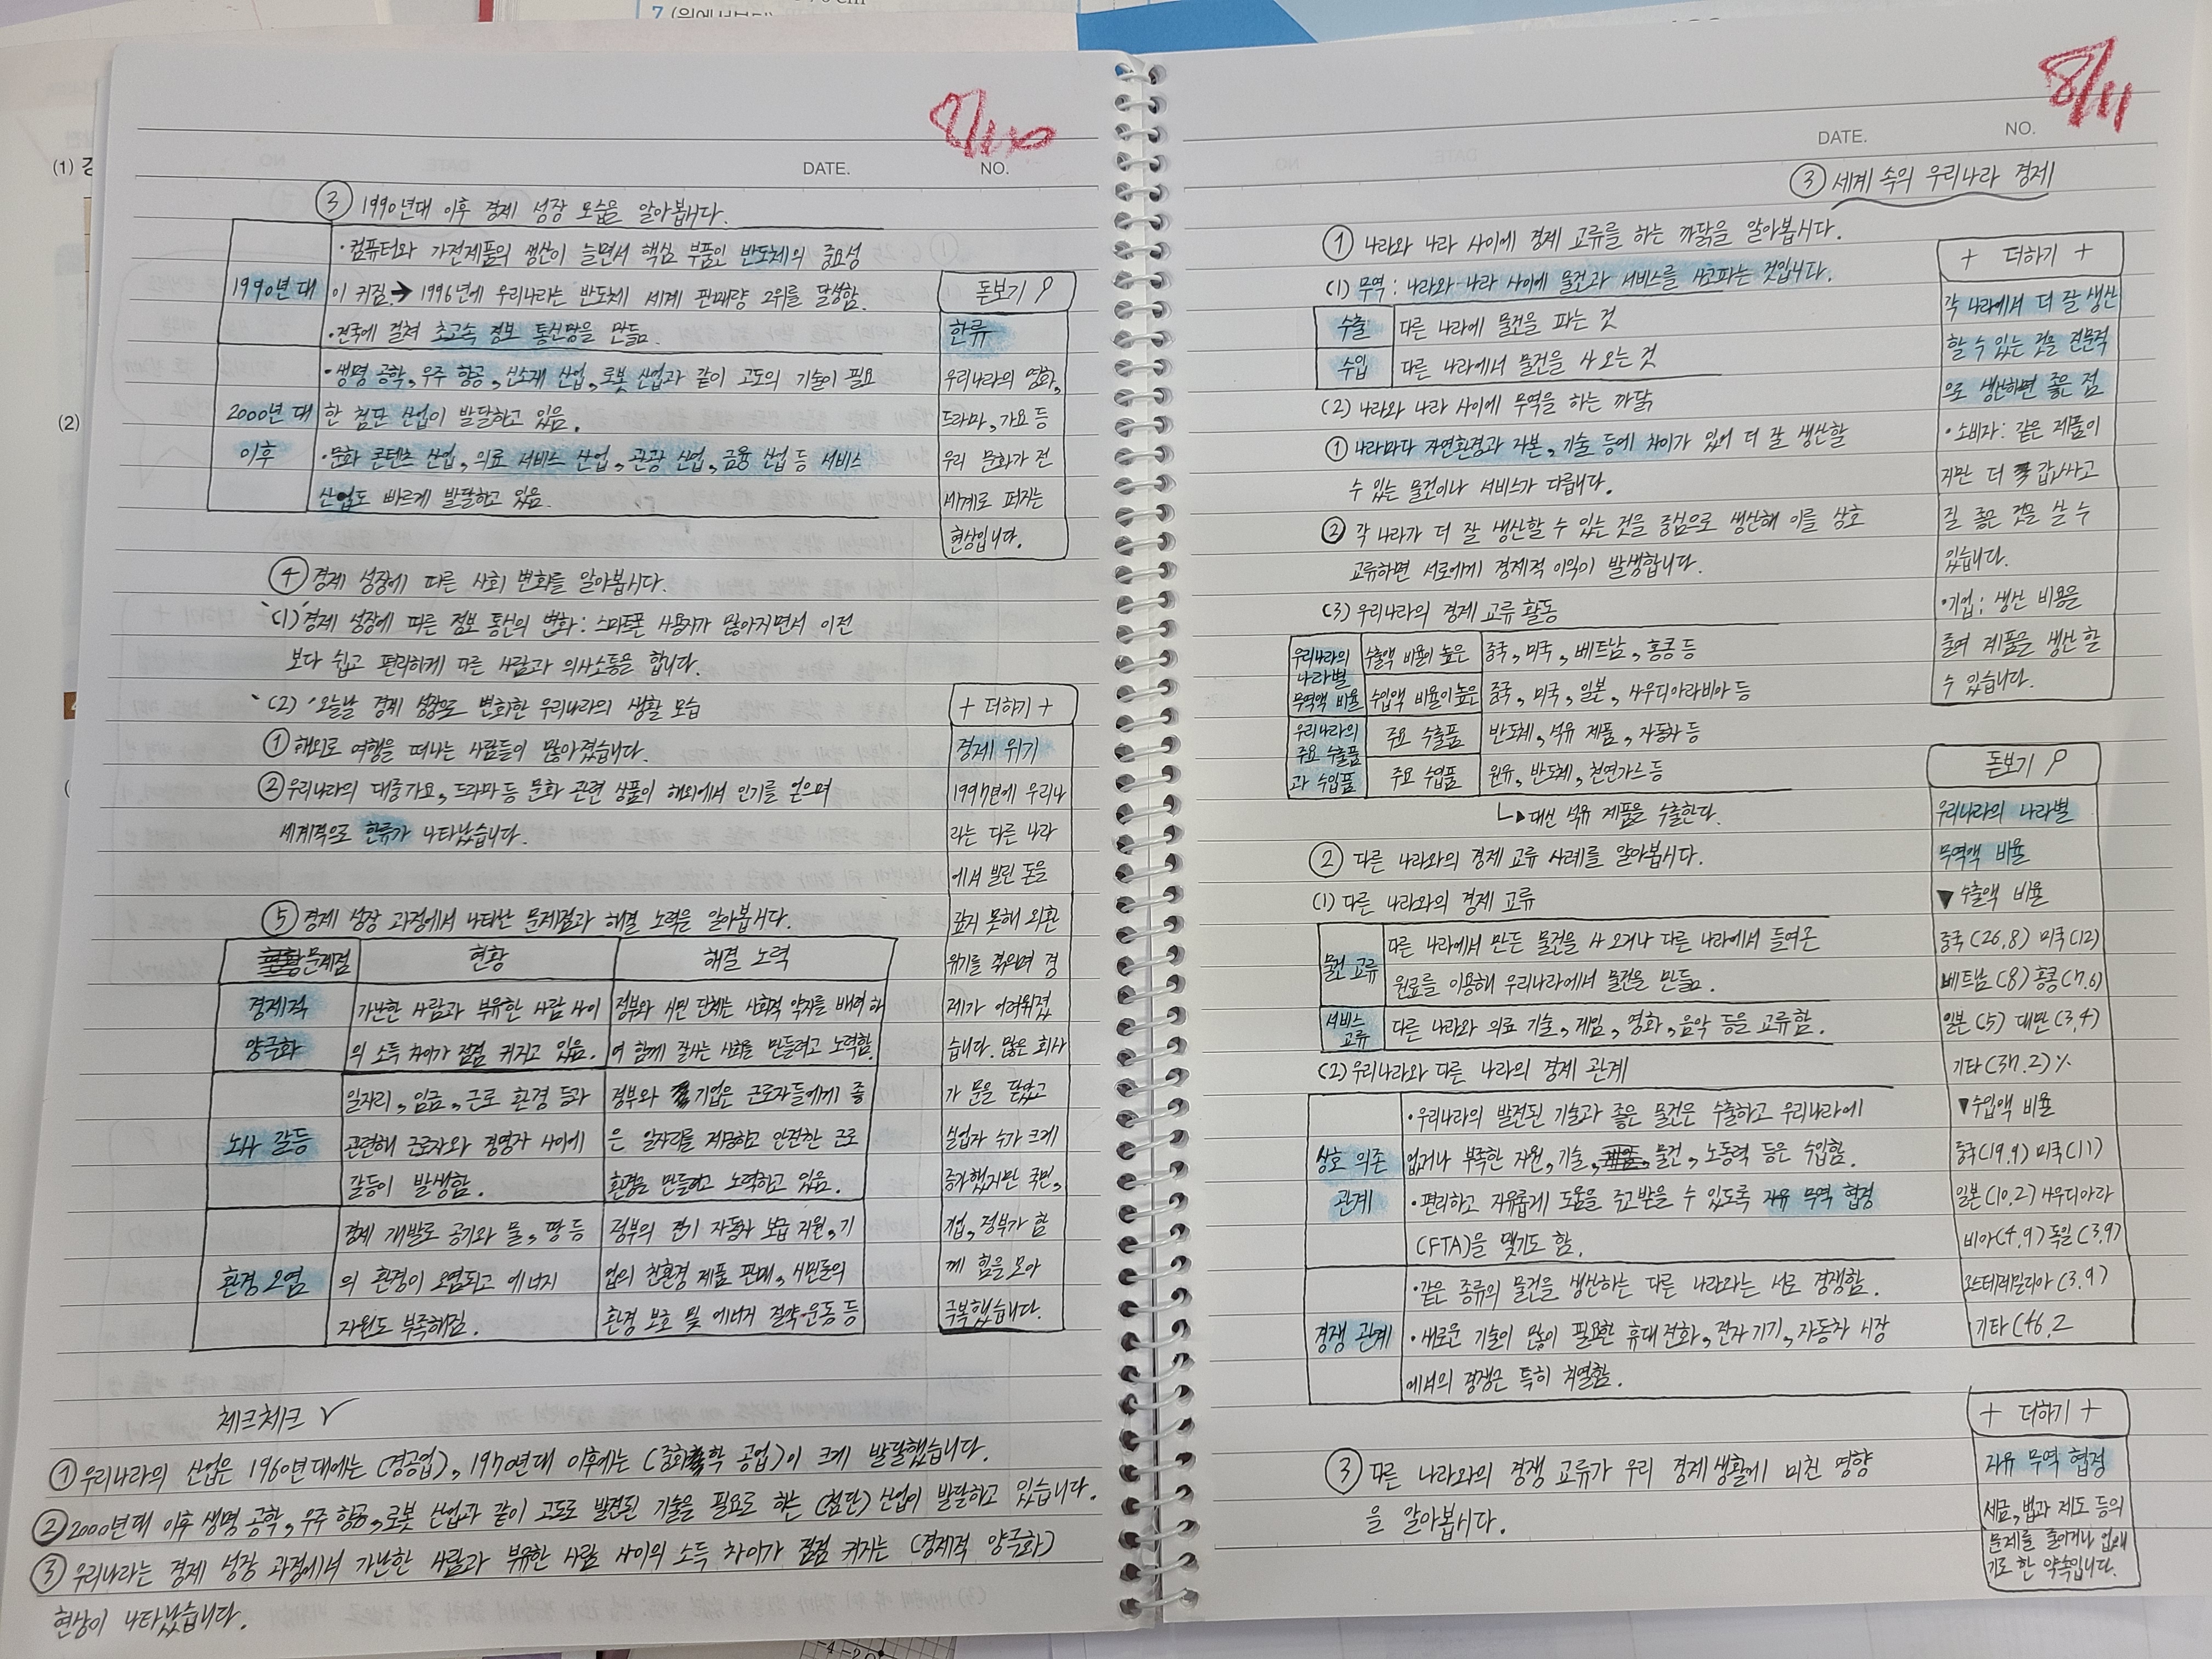 7 (위에서부터)
(1) 경
(2)
8/10
DATE.
NO.
③ 1990년대 이후 경제 성장 모습을 알아봅시다.
1990년대
·컴퓨터와 가전제품의 생산이 늘면서 핵심 부품인 반도체의 중요성
이 커짐.→1996년에 우리나라는 반도체 세계 판매량 2위를 달성함.
·전국에 걸쳐 초고속 정보 통신망을 만듦.
2000년대
이후
·생명 공학, 우주 항공, 신소재 산업, 로봇 산업과 같이 고도의 기술이 필요
한 첨단 산업이 발달하고 있음.
·문화 콘텐츠 산업, 의료 서비스 산업, 관광 산업, 금융 산업 등 서비스
산업도 빠르게 발달하고 있음.
돋보기
한류
우리나라의 영화,
드라마, 가요 등
우리 문화가 전
세계로 퍼지는
현상입니다.
④ 경제 성장에 따른 사회 변화를 알아봅시다.
(1) 경제 성장에 따른 정보 통신의 변화: 스마트폰 사용자가 많아지면서 이전
보다 쉽고 편리하게 다른 사람과 의사소통을 합니다.
(2) 오늘날 경제 성장으로 변화한 우리나라의 생활 모습
① 해외로 여행을 떠나는 사람들이 많아졌습니다.
② 우리나라의 대중가요, 드라마 등 문화 관련 상품이 해외에서 인기를 얻으며
세계적으로 한류가 나타났습니다.
+ 더하기 +
경제 위기
1997년에 우리나
라는 다른 나라
에서 빌린 돈을
갚지 못해 외환
위기를 겪으며 경
제가 어려워졌
습니다. 많은 회사
가 문을 닫았고
실업자 수가 크게
증가했지만 국민,
기업, 정부가 함
께 힘을 모아
극복했습니다.
⑤ 경제 성장 과정에서 나타난 문제점과 해결 노력을 알아봅시다.
문제점 현황 해결 노력
경제적
양극화
가난한 사람과 부유한 사람 사이
의 소득 차이가 점점 커지고 있음.
정부와 시민 단체는 사회적 약자를 배려하
여 함께 잘사는 사회를 만들려고 노력함.
노사 갈등
일자리, 임금, 근로 환경 등과
관련해 근로자와 경영자 사이에
갈등이 발생함.
정부와 기업은 근로자들에게 좋
은 일자리를 제공하고 안전한 근로
환경을 만들려고 노력하고 있음.
환경 오염
경제 개발로 공기와 물, 땅 등
의 환경이 오염되고 에너지
자원도 부족해짐.
정부의 전기 자동차 보급 지원, 기
업의 친환경 제품 판매, 시민들의
환경 보호 및 에너지 절약 운동 등
체크체크 √
① 우리나라의 산업은 1960년대에는 (경공업), 1970년대 이후에는 (중화학 공업)이 크게 발달했습니다.
② 2000년대 이후 생명 공학, 우주 항공, 로봇 산업과 같이 고도로 발전된 기술을 필요로 하는 (첨단) 산업이 발달하고 있습니다.
③ 우리나라는 경제 성장 과정에서 가난한 사람과 부유한 사람 사이의 소득 차이가 점점 커지는 (경제적 양극화)
현상이 나타났습니다.
8/11
DATE.
NO.
③ 세계 속의 우리나라 경제
① 나라와 나라 사이에 경제 교류를 하는 까닭을 알아봅시다.
(1) 무역: 나라와 나라 사이에 물건과 서비스를 사고파는 것입니다.
수출 다른 나라에 물건을 파는 것
수입 다른 나라에서 물건을 사 오는 것
(2) 나라와 나라 사이에 무역을 하는 까닭
① 나라마다 자연환경과 자본, 기술 등에 차이가 있어 더 잘 생산할
수 있는 물건이나 서비스가 다릅니다.
② 각 나라가 더 잘 생산할 수 있는 것을 중심으로 생산해 이를 상호
교류하면 서로에게 경제적 이익이 발생합니다.
(3) 우리나라의 경제 교류 활동
우리나라의
나라별
무역액 비율
수출액 비율이 높은 중국, 미국, 베트남, 홍콩 등
수입액 비율이 높은 중국, 미국, 일본, 사우디아라비아 등
우리나라의
주요 수출품
과 수입품
주요 수출품 반도체, 석유 제품, 자동차 등
주요 수입품 원유, 반도체, 천연가스 등
↳대신 석유 제품을 수출한다.
+ 더하기 +
각 나라에서 더 잘 생산
할 수 있는 것을 전문적
으로 생산하면 좋은 점
·소비자: 같은 제품이
지만 더 값싸고
질 좋은 것을 살 수
있습니다.
·기업: 생산 비용을
줄여 제품을 생산할
수 있습니다.
② 다른 나라와의 경제 교류 사례를 알아봅시다.
(1) 다른 나라와의 경제 교류
물건 교류
다른 나라에서 만든 물건을 사 오거나 다른 나라에서 들여온
원료를 이용해 우리나라에서 물건을 만듦.
서비스
교류
다른 나라와 의료 기술, 게임, 영화, 음악 등을 교류함.
(2) 우리나라와 다른 나라의 경제 관계
상호 의존
관계
·우리나라의 발전된 기술과 좋은 물건은 수출하고 우리나라에
없거나 부족한 자원, 기술, 물건, 노동력 등은 수입함.
·편리하고 자유롭게 도움을 주고받을 수 있도록 자유 무역 협정
(FTA)을 맺기도 함.
경쟁 관계
·같은 종류의 물건을 생산하는 다른 나라와는 서로 경쟁함.
·새로운 기술이 많이 필요한 휴대 전화, 전자 기기, 자동차 시장
에서의 경쟁은 특히 치열함.
돋보기
우리나라의 나라별
무역액 비율
▼수출액 비율
중국(26.8) 미국(12)
베트남(8) 홍콩(7.6)
일본(5) 대만(3.4)
기타(37.2)%
▼수입액 비율
중국(19.9) 미국(11)
일본(10.2) 사우디아라
비아(4.9) 독일(3.9)
오스테레일리아(3.9)
기타(46.2
③ 다른 나라와의 경쟁 교류가 우리 경제생활에 미친 영향
을 알아봅시다.
+ 더하기 +
자유 무역 협정
세금, 법과 제도 등의
문제를 줄이거나 없애
기로 한 약속입니다.